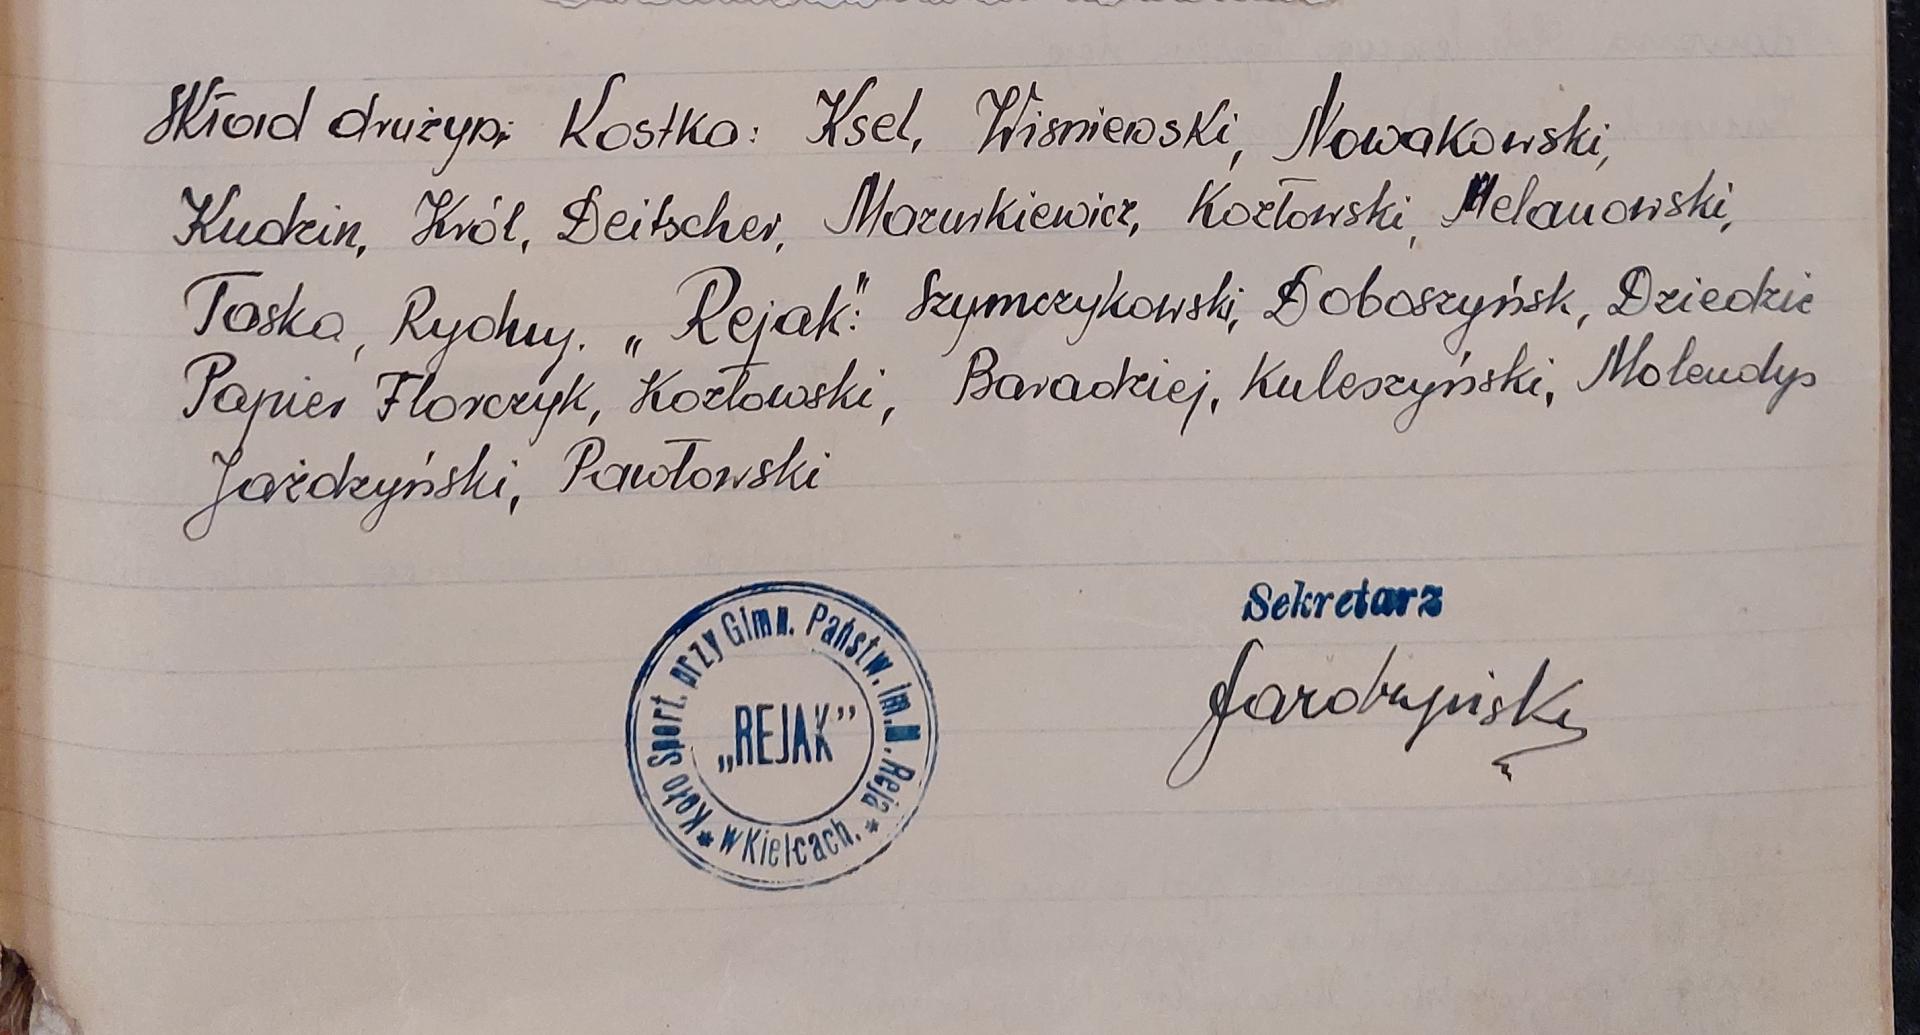 Skład drużyn: Kostka: Ksel, Wismiewski, Nowakowski,
Kudzin, Król, Deitscher, Mazurkiewicz, Kozłowski, Melanowski,
Taska, Rychny. „Rejak": Szymczykowski, Doboszyńsk, Dziedzic
Papier Florczyk, Kozłowski, Baradziej, Kuleszyński, Molendys
Jażdzyński, Pawłowski
Sekretarz
Jażdzyński
Koło Sport. przy Gimn. Państw. im. M. Reja
„REJAK”
* w Kielcach. *